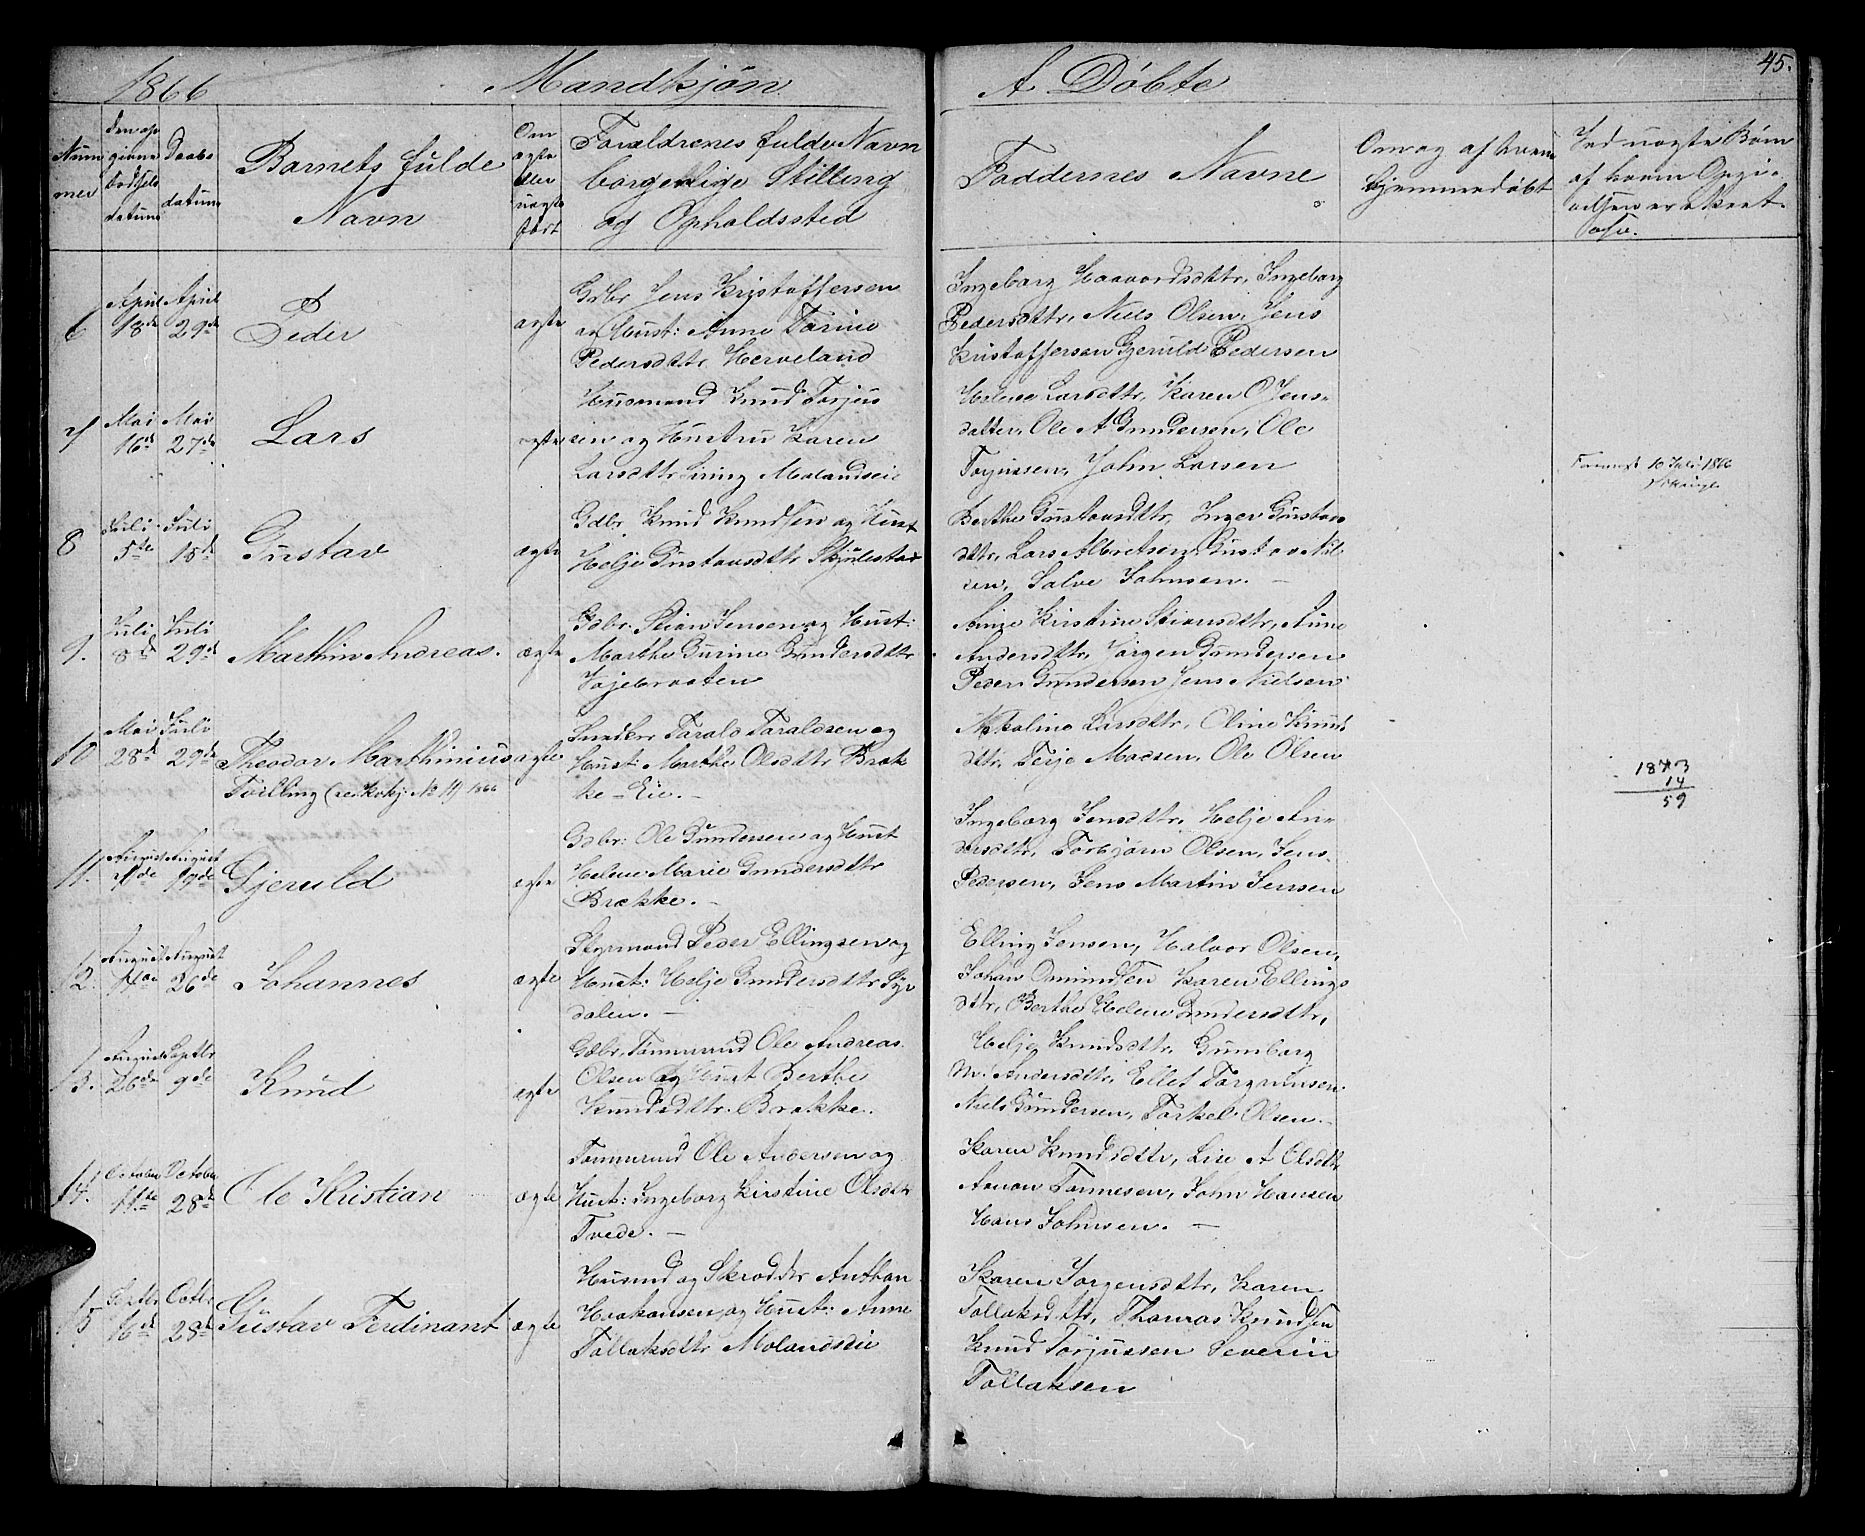 1866 Mandkjön A. Döbte 45.
Num
mer
den op
givne
Födsels
datum
Daabs
datum
Barnets fulde
Navn
Om
ægte
eller
uægte
født
Forældrenes fulde Navn
borgerlige Stilling
og Opholdssted
Faddernes Navne
Om og af hvem
hjemmedöbt
Ved uægte Börn
af hvem Opgi-
velsen er skeet.
6
April
18de
April
29de
Peder
ægte
Gdbr Jens Kristoffersen
og Hust: Anne Torine
Pedersdttr Herveland
Ingeborg Haavordsdttr, Ingeborg
Pedersdttr, Niels Olsen, Jens
Kristoffersen Gjeruld Pedersen
7
Mai
16de
Mai
27de
Lars
ægte
Husmand Knud Torjus
sen og Hustru Karen
Larsdttr Molandseie
Helene Larsdttr, Karen O Jens-
datter, Ole A Gundersen, Ole
Torjussen, John Larsen
10 Juli 1866
8
Juli
5te
Juli
15de
Gustav
ægte
Gdbr. Knud Knudsen og Hust
Helje Gustavsdttr Skjulestad
Berthe Gustavsdttr, Inger Gustavs
dttr, Lars Albretsen, Gustav Nil-
sen, Salve Johnsen. -
9.
Juli
8de
Juli
29de
Marthin Andreas.
ægte
Gdbr. Stian Jensen og Hust:
Marthe Gurine Gundersdttr
Vojebraaten
Anne Kristine Stiansdttr, Anne
Andersdttr, Jörgen Gundersen
Peder Gundersen Jens Nielsen
10
Mai
28de
Juli
29de
Theodor Marthinius
Tvilling No 1866
ægte
Tarald Taraldsen og
Hust: Marthe Olsdttr Bræk
ke-Eie. -
Larsdttr, Oline Knuds
dttr, Terje Madsen, Ole Olsen
1873
14
59
11.
August
August
19de
Gjeruld
ægte
Gdbr: Ole Gundersen og Hust
Helene Marie Gundersdttr
Brække. -
Ingeborg Jensdttr, Helje An-
dersdttr, Torbjörn Olsen, Jens
Pedersen, Jens Martin Jensen
12.
August
August
26de
Johannes
ægte
Styrmand Peder Ellingsen og
Hust: Helje Gundersdttr Syv
dalen. -
Elling Jensen, Halvor Olsen,
Johan Omundsen Karen Ellings
dttr, Berthe Helene Gundersdttr,
13.
August
26de
Septbr
9de
Knud
ægte
Gdbr. Tömmermd Ole Andreas
Olsen og Hust Berthe
Knudsdttr. Brække.
Helje Knudsdttr. Gunborg
M. Andersdttr, Ellef Torgrimsen
Niels Gundersen, Torkel Olsen. -
14.
October
11te
October
28de
Ole Kristian
ægte
Tömmermd Ole Andersen og
Hust: Ingeborg Kirstine Olsdttr
Tvede. -
Karen Knudsdttr, Lise A Olsdttr
Aanon Tönnesen, John Hansen
Hans Johnsen. -
15
Septbr
16de
Octbr
28de
Gustav Ferdinant
ægte
Husmd og Skrædder Anthon
Haakonsen, og Hust: Anne
Tollaksdttr Molandseie
Karen Jorgensdttr, Karen
Tollaksdttr, Thomas Knudsen
Knud Torjussen Severin
Tollaksen